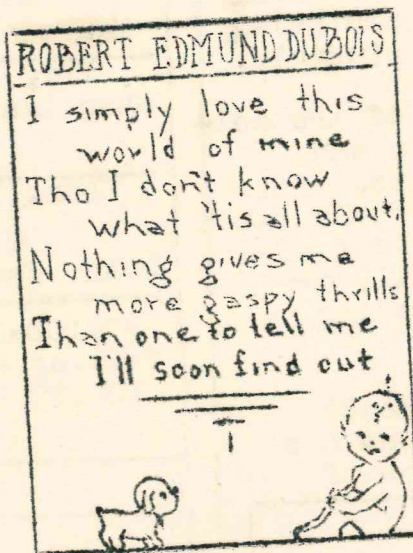 ROBERT EDMUND DUBOIS
I simply love this
world of mine
Tho I don't know
what 'tis all about.
Nothing gives me
more gaspy thrills
Than one to tell me
I'll soon find out